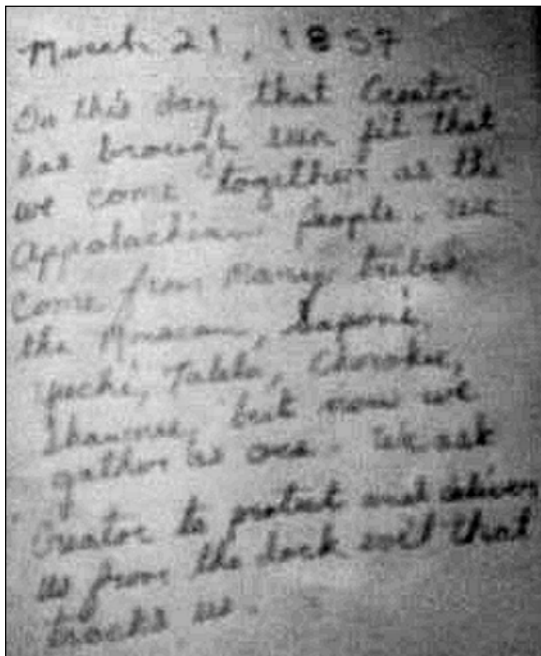 March 21, 1857
On this day that Creator
has brough seen fit that
we come together as the
Appalachian people. We
Come from Many tribes,
the Monacan, Saponi,
Yuchi, Cherokee,
Shawnee, but now we
gather as one. We ask
Creator to protect and deliver
us from the dark evil that
tracks us.